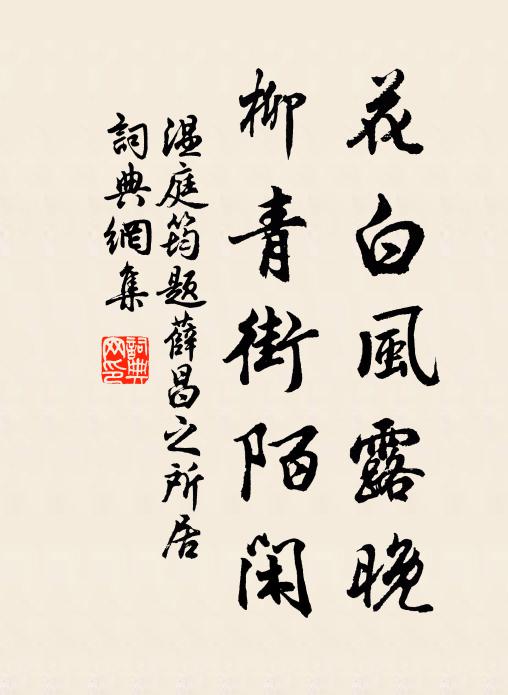 花白風露晚
柳青街陌閑
温庭筠题薛昌之所居
詞典網集
詞典网印